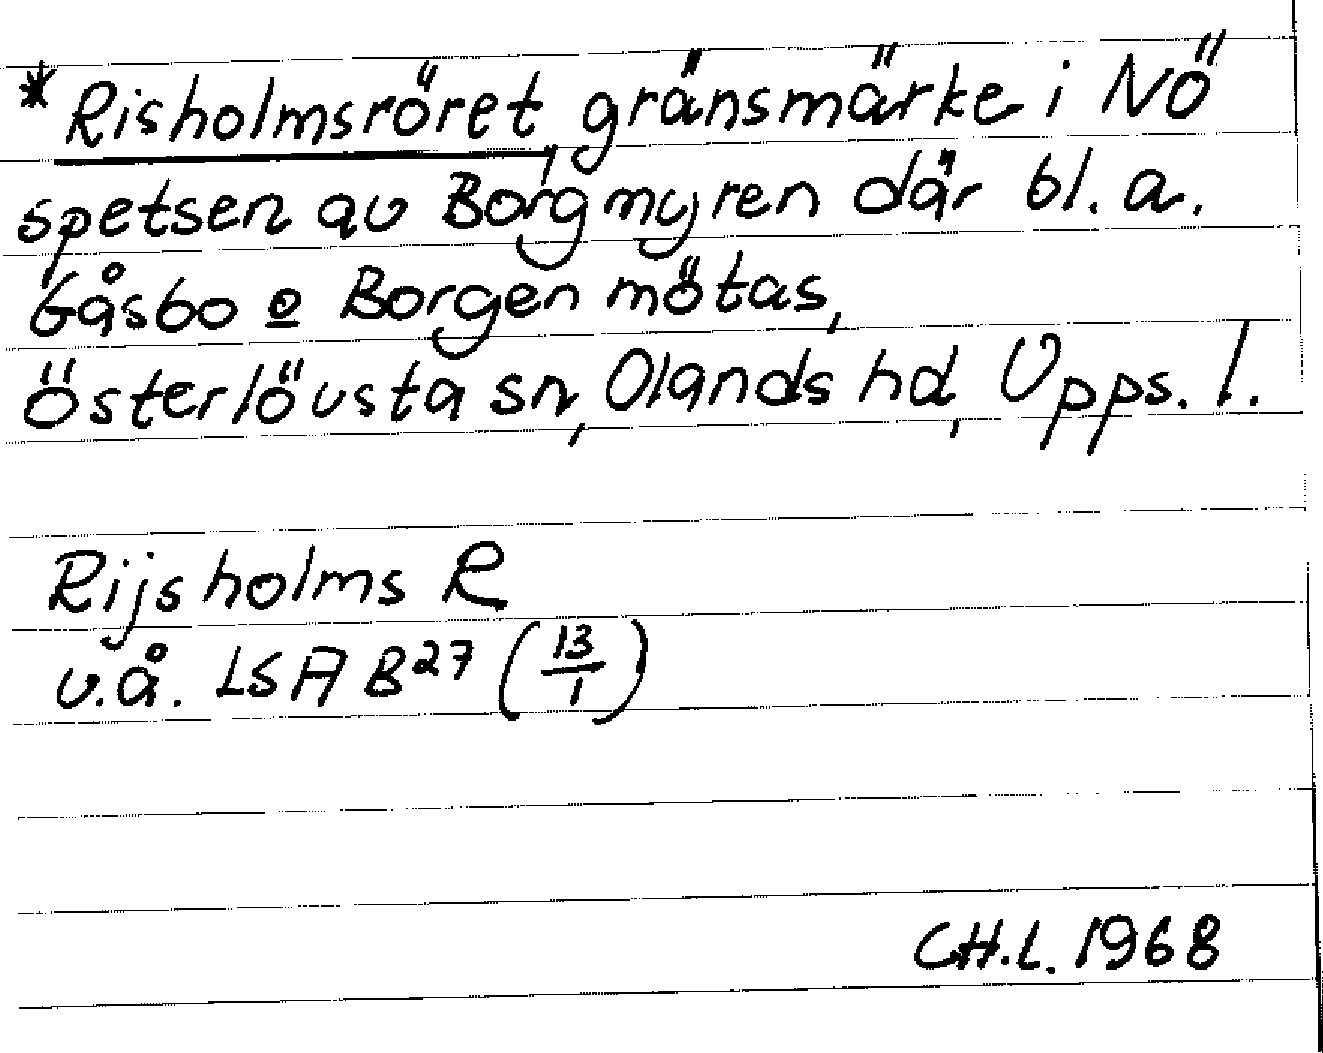 * Risholmsröret, gränsmärke i NÖ
spetsen av Borgmyren där bl. a.
Gåsbo o Borgen mötas,
Österlövsta sn, Olands hd, Upps. l.
Rijsholms R
u.å. LSA B27 (13/1)
CH.L. 1968